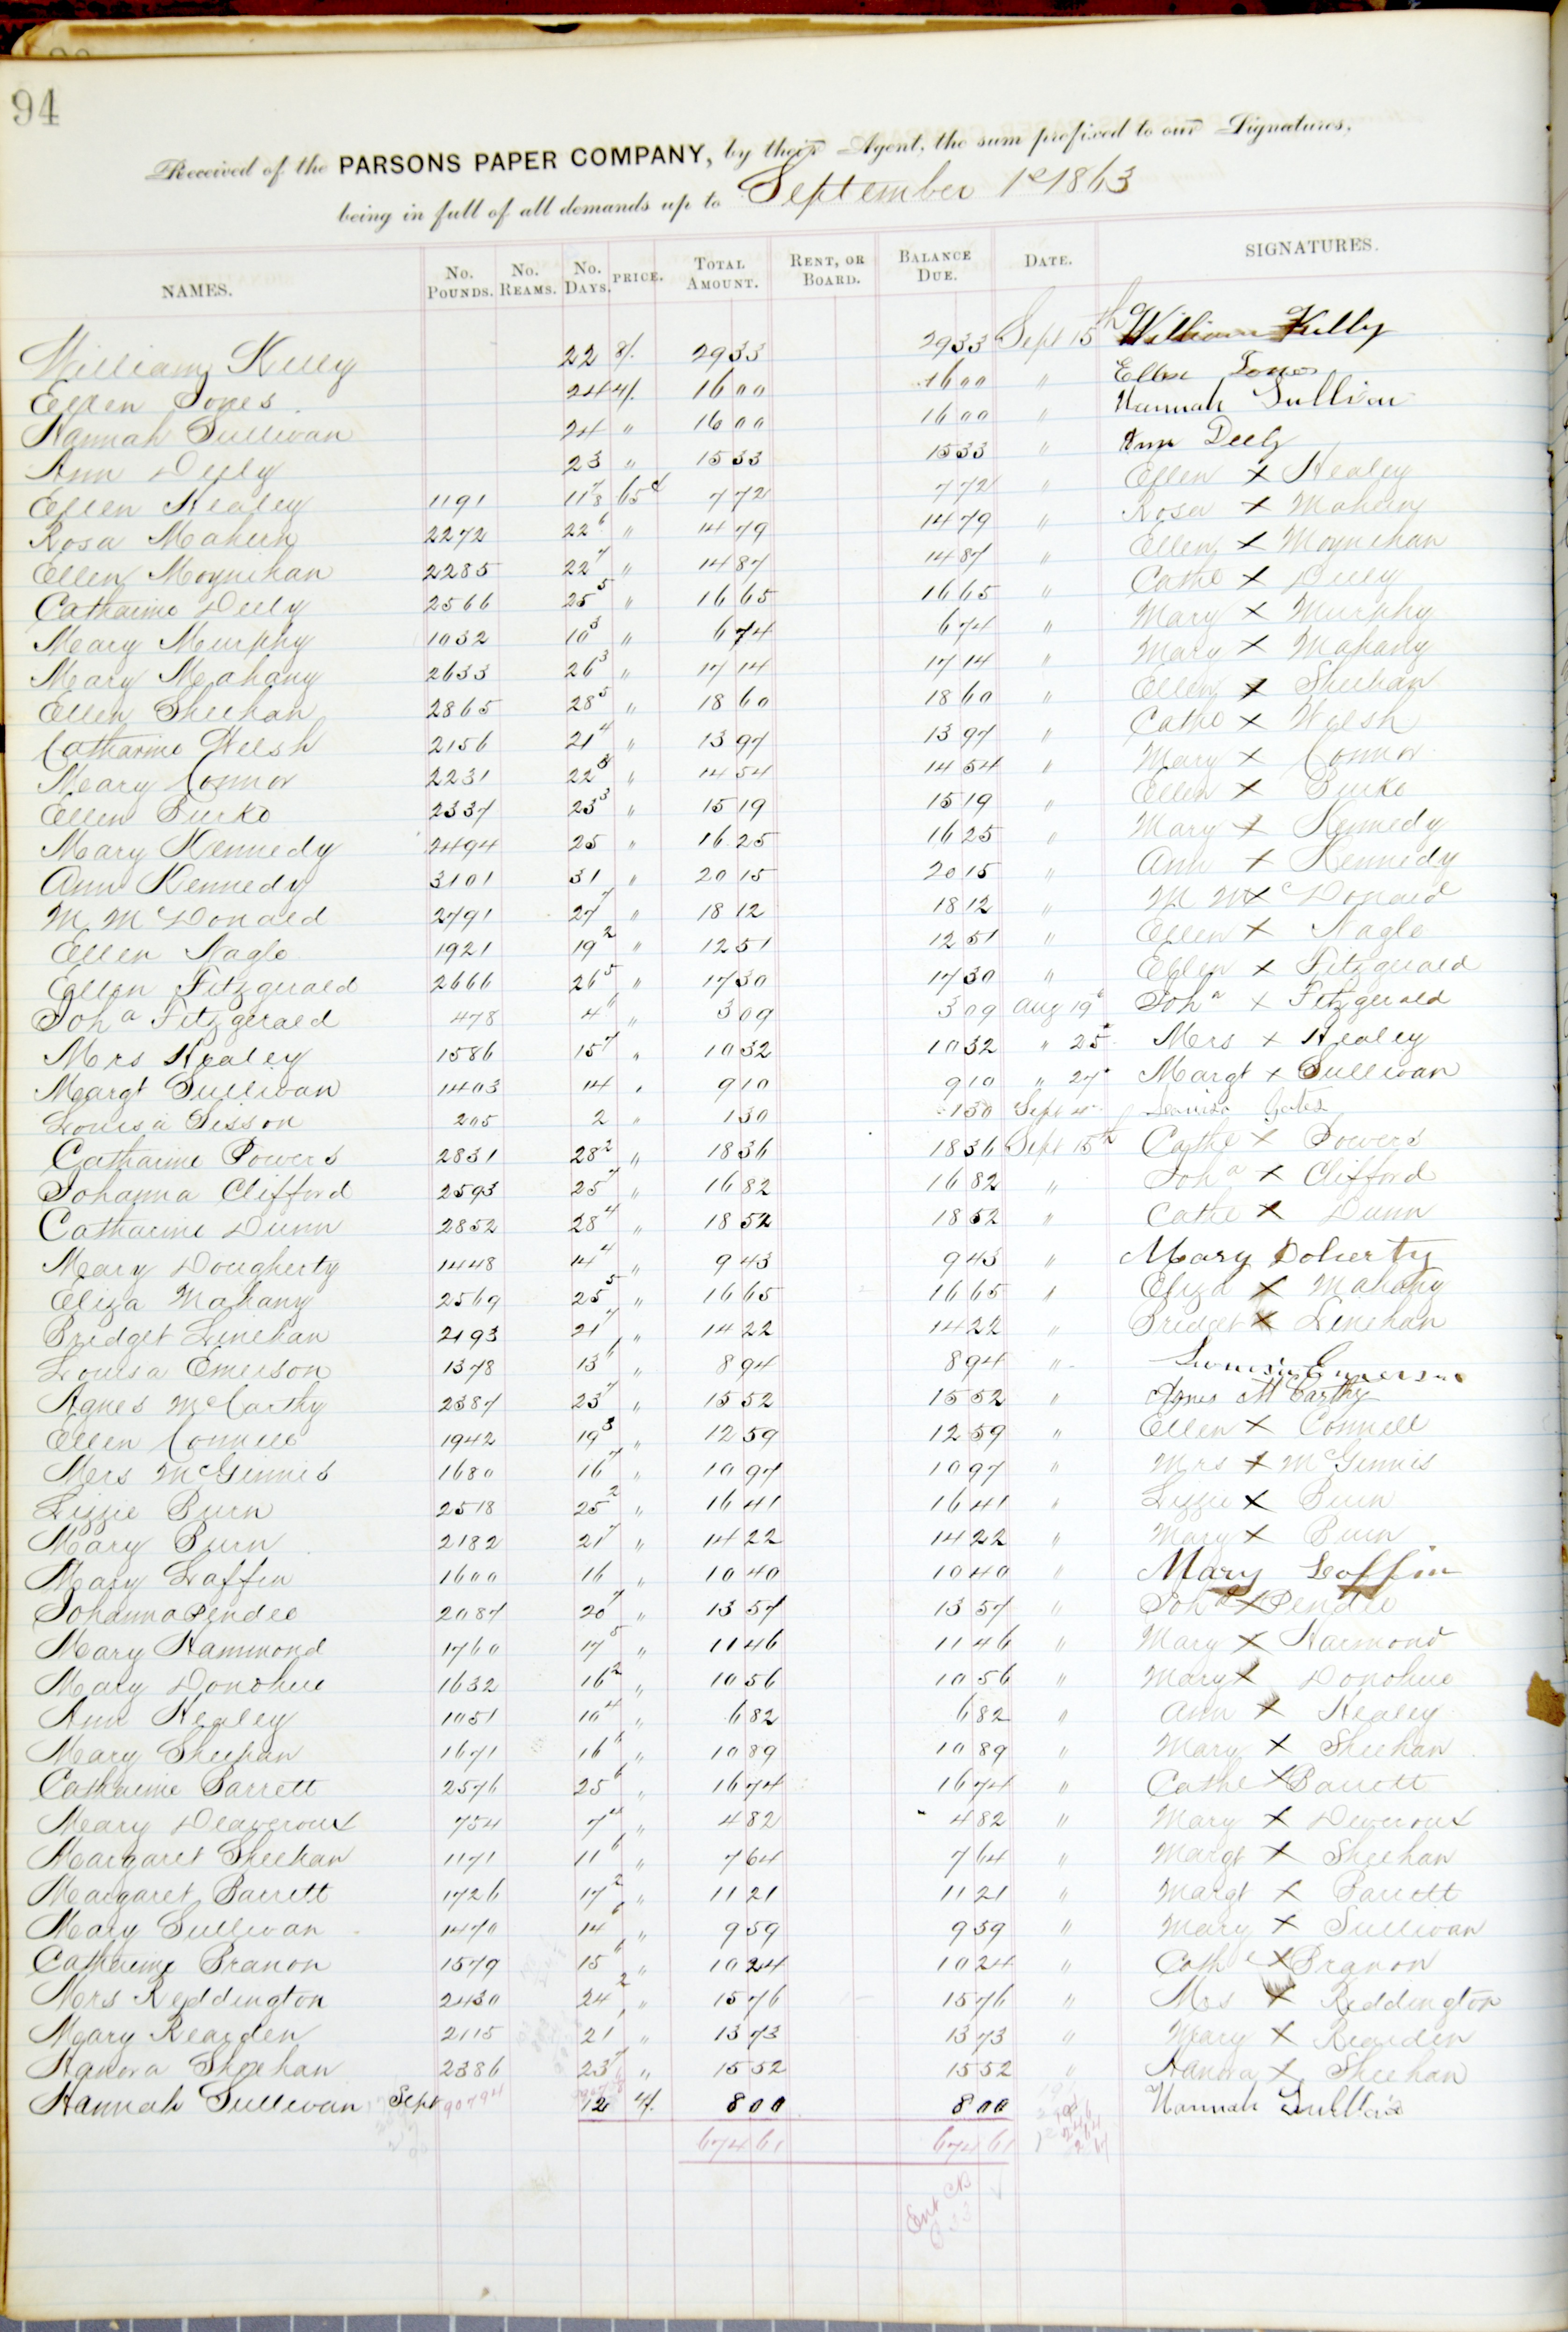 94
Received of the PARSONS PAPER COMPANY, by their Agent, the sum prefixed to our Signatures,
being in full of all demands up to September 1st 1863
NAMES. No. POUNDS. No. REAMS. No. DAYS. PRICE. TOTAL AMOUNT. RENT, OR BOARD. BALANCE DUE. DATE. SIGNATURES.
William Kelly 22 8/. 29 33 29 33 Sept 15th William Kelly
Ellen Jones 24 4/. 16 00 16 00 " Ellen Jones
Hannah Sullivan 24 " 16 00 16 00 " Hannah Sullivan
Ann Deely 23 " 15 33 15 33 " Ann Deely
Ellen Healey 1191 11 7/8 65c 7 72 7 72 " Ellen X Healey
Rosa Mahern 2272 22 6 " 14 79 14 79 " Rosa X Mahern
Ellen Moynihan 2285 22 7 " 14 87 14 87 " Ellen X Moynihan
Catharine Deely 2566 25 5 " 16 65 16 65 " Cathe X Deely
Mary Murphy 1032 10 3 " 6 74 6 74 " Mary X Murphy
Mary Mahany 2633 26 3 " 17 14 17 14 " Mary X Mahany
Ellen Sheehan 2865 28 5 " 18 60 18 60 " Ellen X Sheehan
Catharine Welsh 2156 21 4 " 13 97 13 97 " Cathe X Welsh
Mary Connor 2231 22 3 " 14 54 14 54 " Mary X Connor
Ellen Burke 2337 23 3 " 15 19 15 19 " Ellen X Burke
Mary Kennedy 2494 25 " 16 25 16 25 " Mary X Kennedy
Ann Kennedy 3101 31 " 20 15 20 15 " Ann X Kennedy
M McDonald 2791 27 7 " 18 12 18 12 " M McX Donald
Ellen Nagle 1921 19 2 " 12 51 12 51 " Ellen X Nagle
Ellen Fitzgerald 2666 26 5 " 17 30 17 30 " Ellen X Fitzgerald
Joha Fitzgerald 478 4 6 " 3 09 3 09 Aug 19 Joha X Fitzgerald
Mrs Healey 1586 15 7 " 10 32 10 32 " 25 Mrs X Healey
Margt Sullivan 1403 14 " 9 10 9 10 " 27 Margt X Sullivan
Louisa Sisson 205 2 " 1 30 1 30 Sept 4 Louisa
Catharine Powers 2831 28 2 " 18 36 18 36 Sept 15th Cathe X Powers
Johanna Clifford 2593 25 7 " 16 82 16 82 " Joha X Clifford
Catharine Dunn 2852 28 4 " 18 52 18 52 " Cathe X Dunn
Mary Dougherty 1448 14 4 " 9 43 9 43 " Mary Doherty
Eliza Mahany 2569 25 5 " 16 65 16 65 " Eliza X Mahany
Bridget Linehan 2193 21 7 " 14 22 14 22 " Bridget X Linehan
Louisa Emerson 1378 13 6 " 8 94 8 94 " Louisa Emerson
Agnes McCarthy 2387 23 7 " 15 52 15 52 " Agnes McCarthy
Ellen Connell 1942 19 3 " 12 59 12 59 " Ellen X Connell
Mrs McGinnis 1680 16 7 " 10 97 10 97 " Mrs X McGinnis
Lizzie Burn 2518 25 2 " 16 41 16 41 " Lizzie X Burn
Mary Burn 2182 21 7 " 14 22 14 22 " Mary X Burn
Mary Laffin 1600 16 10 40 10 40 " Mary Loffin
Johanna Pendee 2087 20 7 " 13 57 13 57 " Joha X Pendee
Mary Hammond 1760 17 5 " 11 46 11 46 " Mary X Harmond
Mary Donohue 1632 16 2 " 10 56 10 56 " Mary X Donohue
Ann Healey 1051 10 4 " 6 82 6 82 " Ann X Healey
Mary Sheehan 1671 16 6 " 10 89 10 89 " Mary X Sheehan
Catharine Barrett 2576 25 6 " 16 74 16 74 " Cathe X Barrett
Mary Deaveroux 754 7 4 " 4 82 4 82 " Mary X Deveroux
Margaret Sheehan 1171 11 6 " 7 64 7 64 " Margt X Sheehan
Margaret Barrett 1726 17 2 " 11 21 11 21 " Margt X Barrett
Mary Sullivan 1470 14 6 " 9 59 9 59 " Mary X Sullivan
Catharine Branon 1579 15 6 " 10 24 10 24 " Cathe X Branon
Mrs Reddington 2430 24 2 " 15 76 15 76 " Mrs X Reddington
Mary Rearden 2115 21 1 " 13 73 13 73 " Mary X Rearden
Hanora Sheehan 2386 23 7 " 15 52 15 52 " Hanora X Sheehan
Hannah Sullivan Sept 90794 12 4/. 8 00 8 00 Hannah Sullivan
674 61 674 61
Ent CB